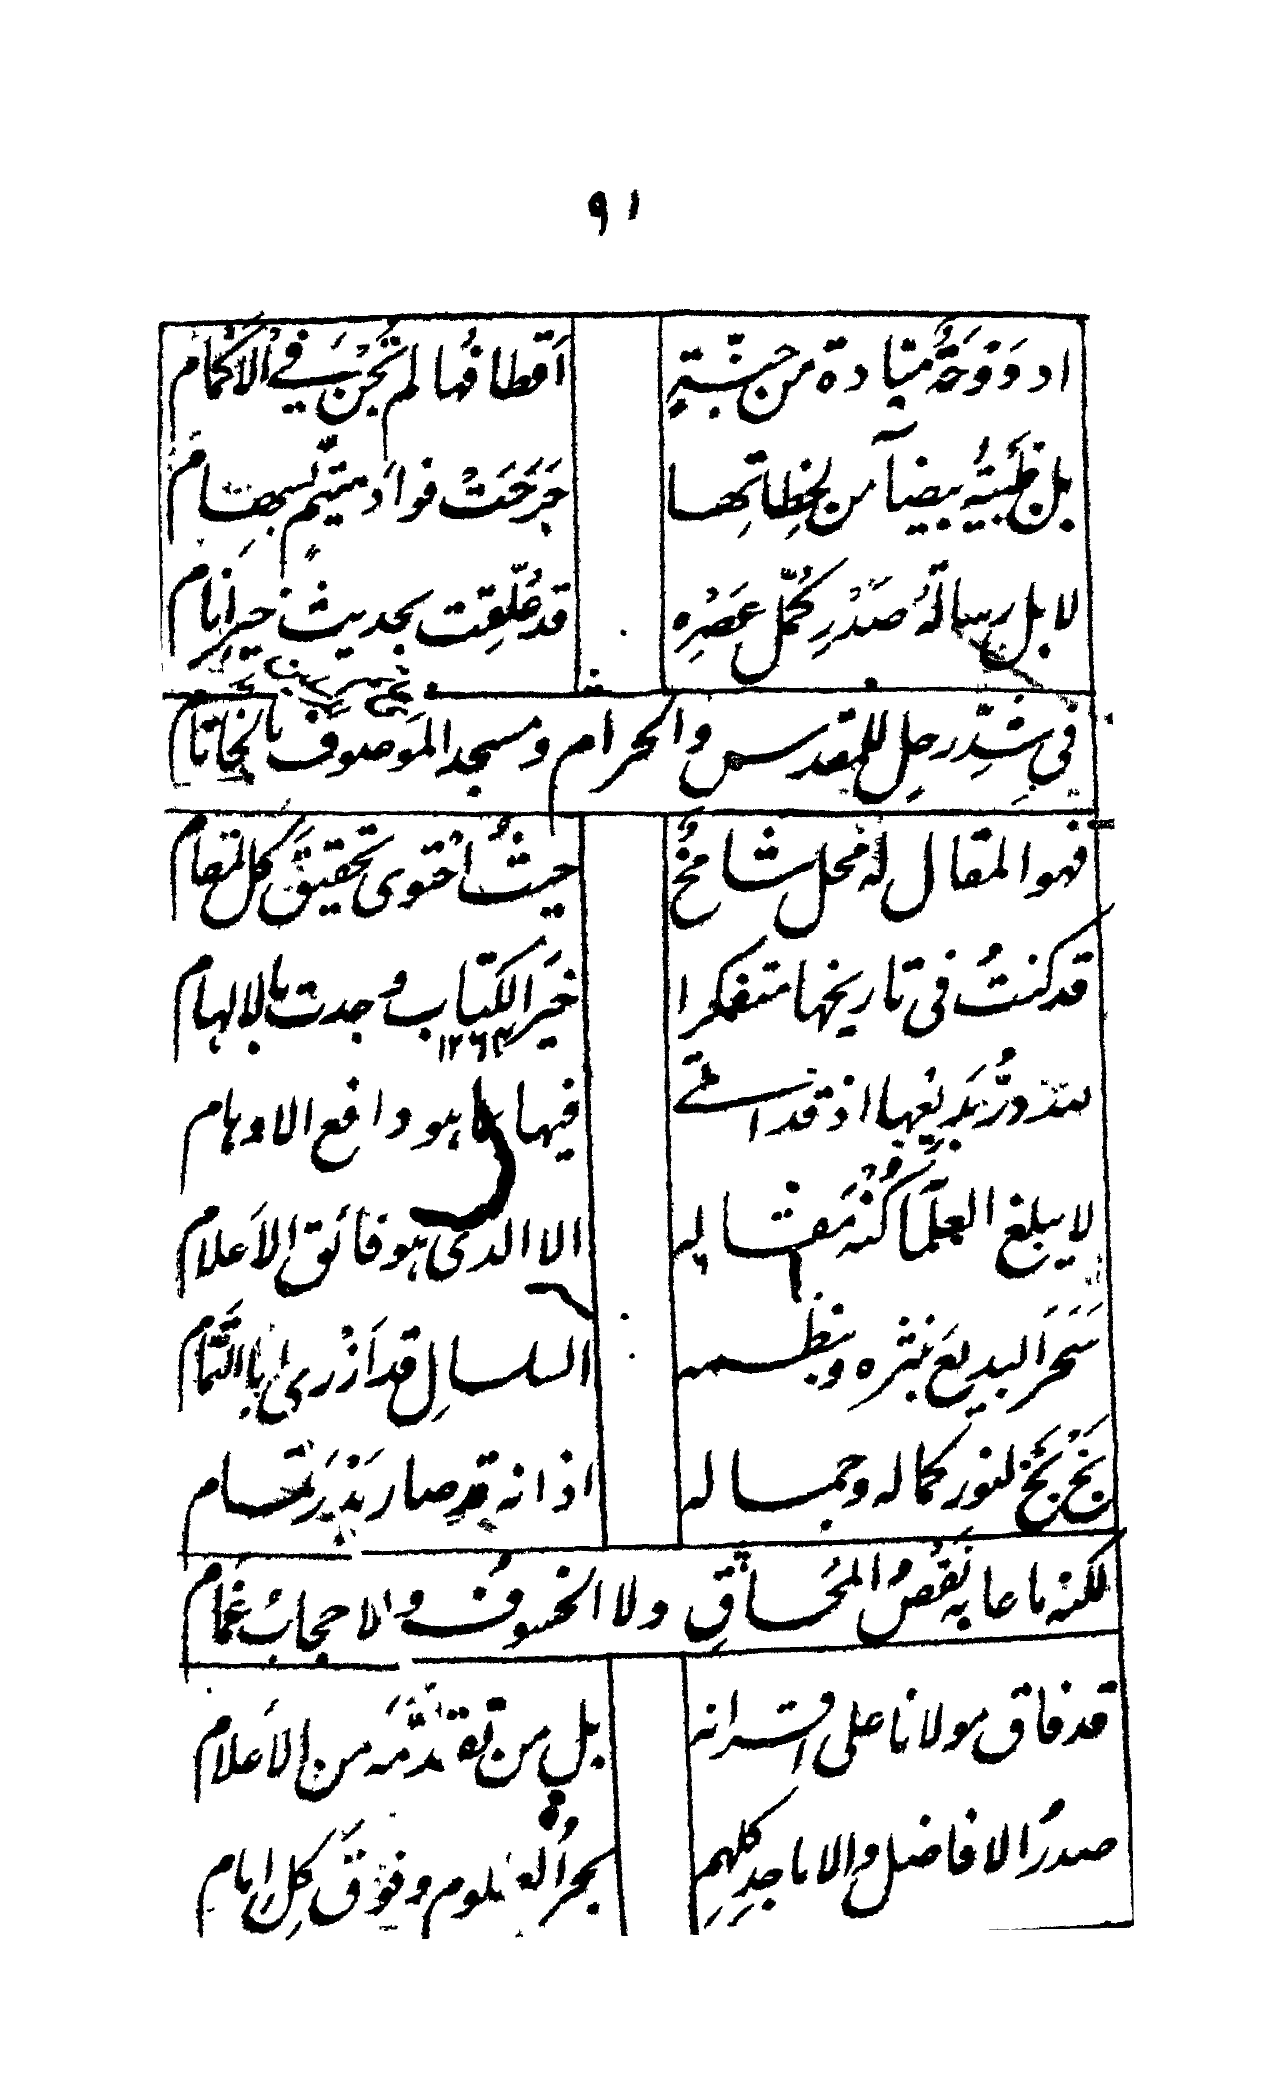 ٩١
او دَوْحَةٌ ميادة من جنّةٍ اَقطافُها لم تُجْنَ في الاكمام
بل ظَبيةٌ بيضآ من لحظاتها جَرَحَتْ فواَد متيّم بسهام
لا بل رسالةُ صَدْرِ كُمّل عَصْرِه قد عُلّقت بحديث خير انام
في شدّ رحلٍ للمقدس والحرام ومسجد الموصوف بالخاتام
فهو المقال له محل شامخٌ حيثُ احتوى تحقيقَ كل مقام
قد كنتُ في تاريخها متفكرا خيَر الكتاب وجدت بالالهام
١٢٦٤
لله دُرُّ بَديعها اذ قد اتى فيها بما هو دافع الاوهام
لا يبلغ العلمآ كُنْهَ مَقاله الا الذي هو فائق الاَعلام
سَحَرَ البديعَ بنثره وبنظمه السلسالِ قد اَزْرى ابا التمّام
بَخْ بَخْ لنور كماله وجماله اذ انه قد صار بَدْرَ تمام
لكنه ما عابه نَقْصُ المُحاقِ ولا الخسوفُ ولا حجابُ غَمام
قد فاق مولانا على اقرانه بل من تقدّمَه من الاَعلام
صدرُ الافاضل والاماجدِ كلهمِ بحرُ العلوم وفوقَ كلِ امام